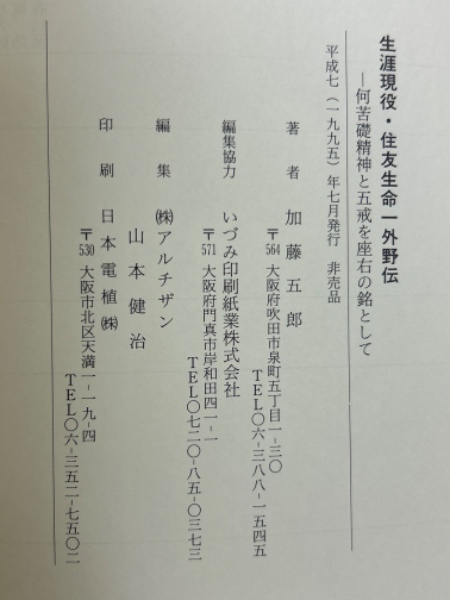 生涯現役・住友生命一外野伝
―何苦礎精神と五戒を座右の銘として
平成七(一九九五)年七月発行 非売品
著者 加藤五郎
〒564 大阪府吹田市泉町五丁目一-三〇
TEL〇六-三八八-一五四五
編集協力 いづみ印刷紙業株式会社
〒571 大阪府門真市岸和田四-一-一
TEL〇七二〇-八五-〇三七三
編集 ㈱アルチザン
山本健治
印刷 日本電植㈱
〒530 大阪市北区天満一-一九-四
TEL〇六-三五二-七五〇二